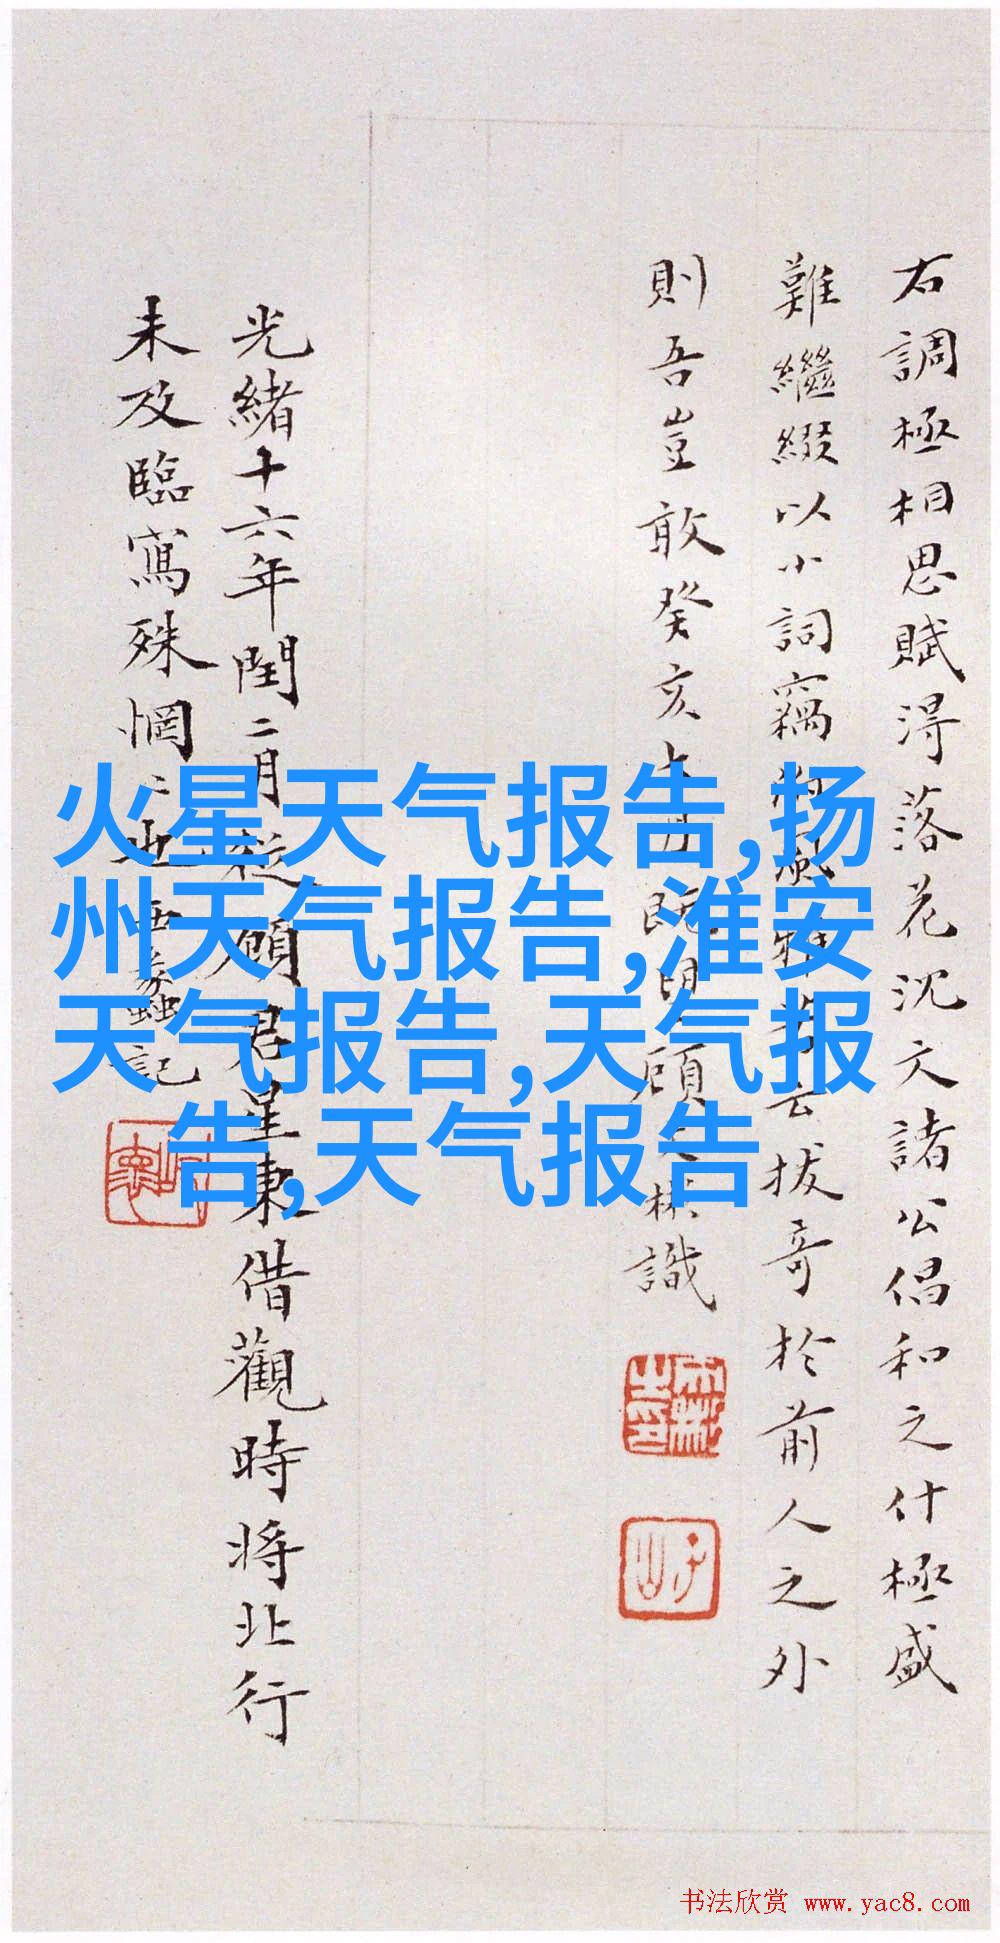 右調極相思賦得落花沈文諸公倡和之什極盛
難繼綴以小詞竊附風雅 云拔奇於前人之外
則吾豈敢癸亥七月既望顧文彬識
光緒十六年閏二月從顧君星東借觀時將北行
未及臨寫殊惘 記
火星天气报告,扬
州天气报告,淮安
天气报告,天气报
告,天气报告
书法欣赏 www.yac8.com